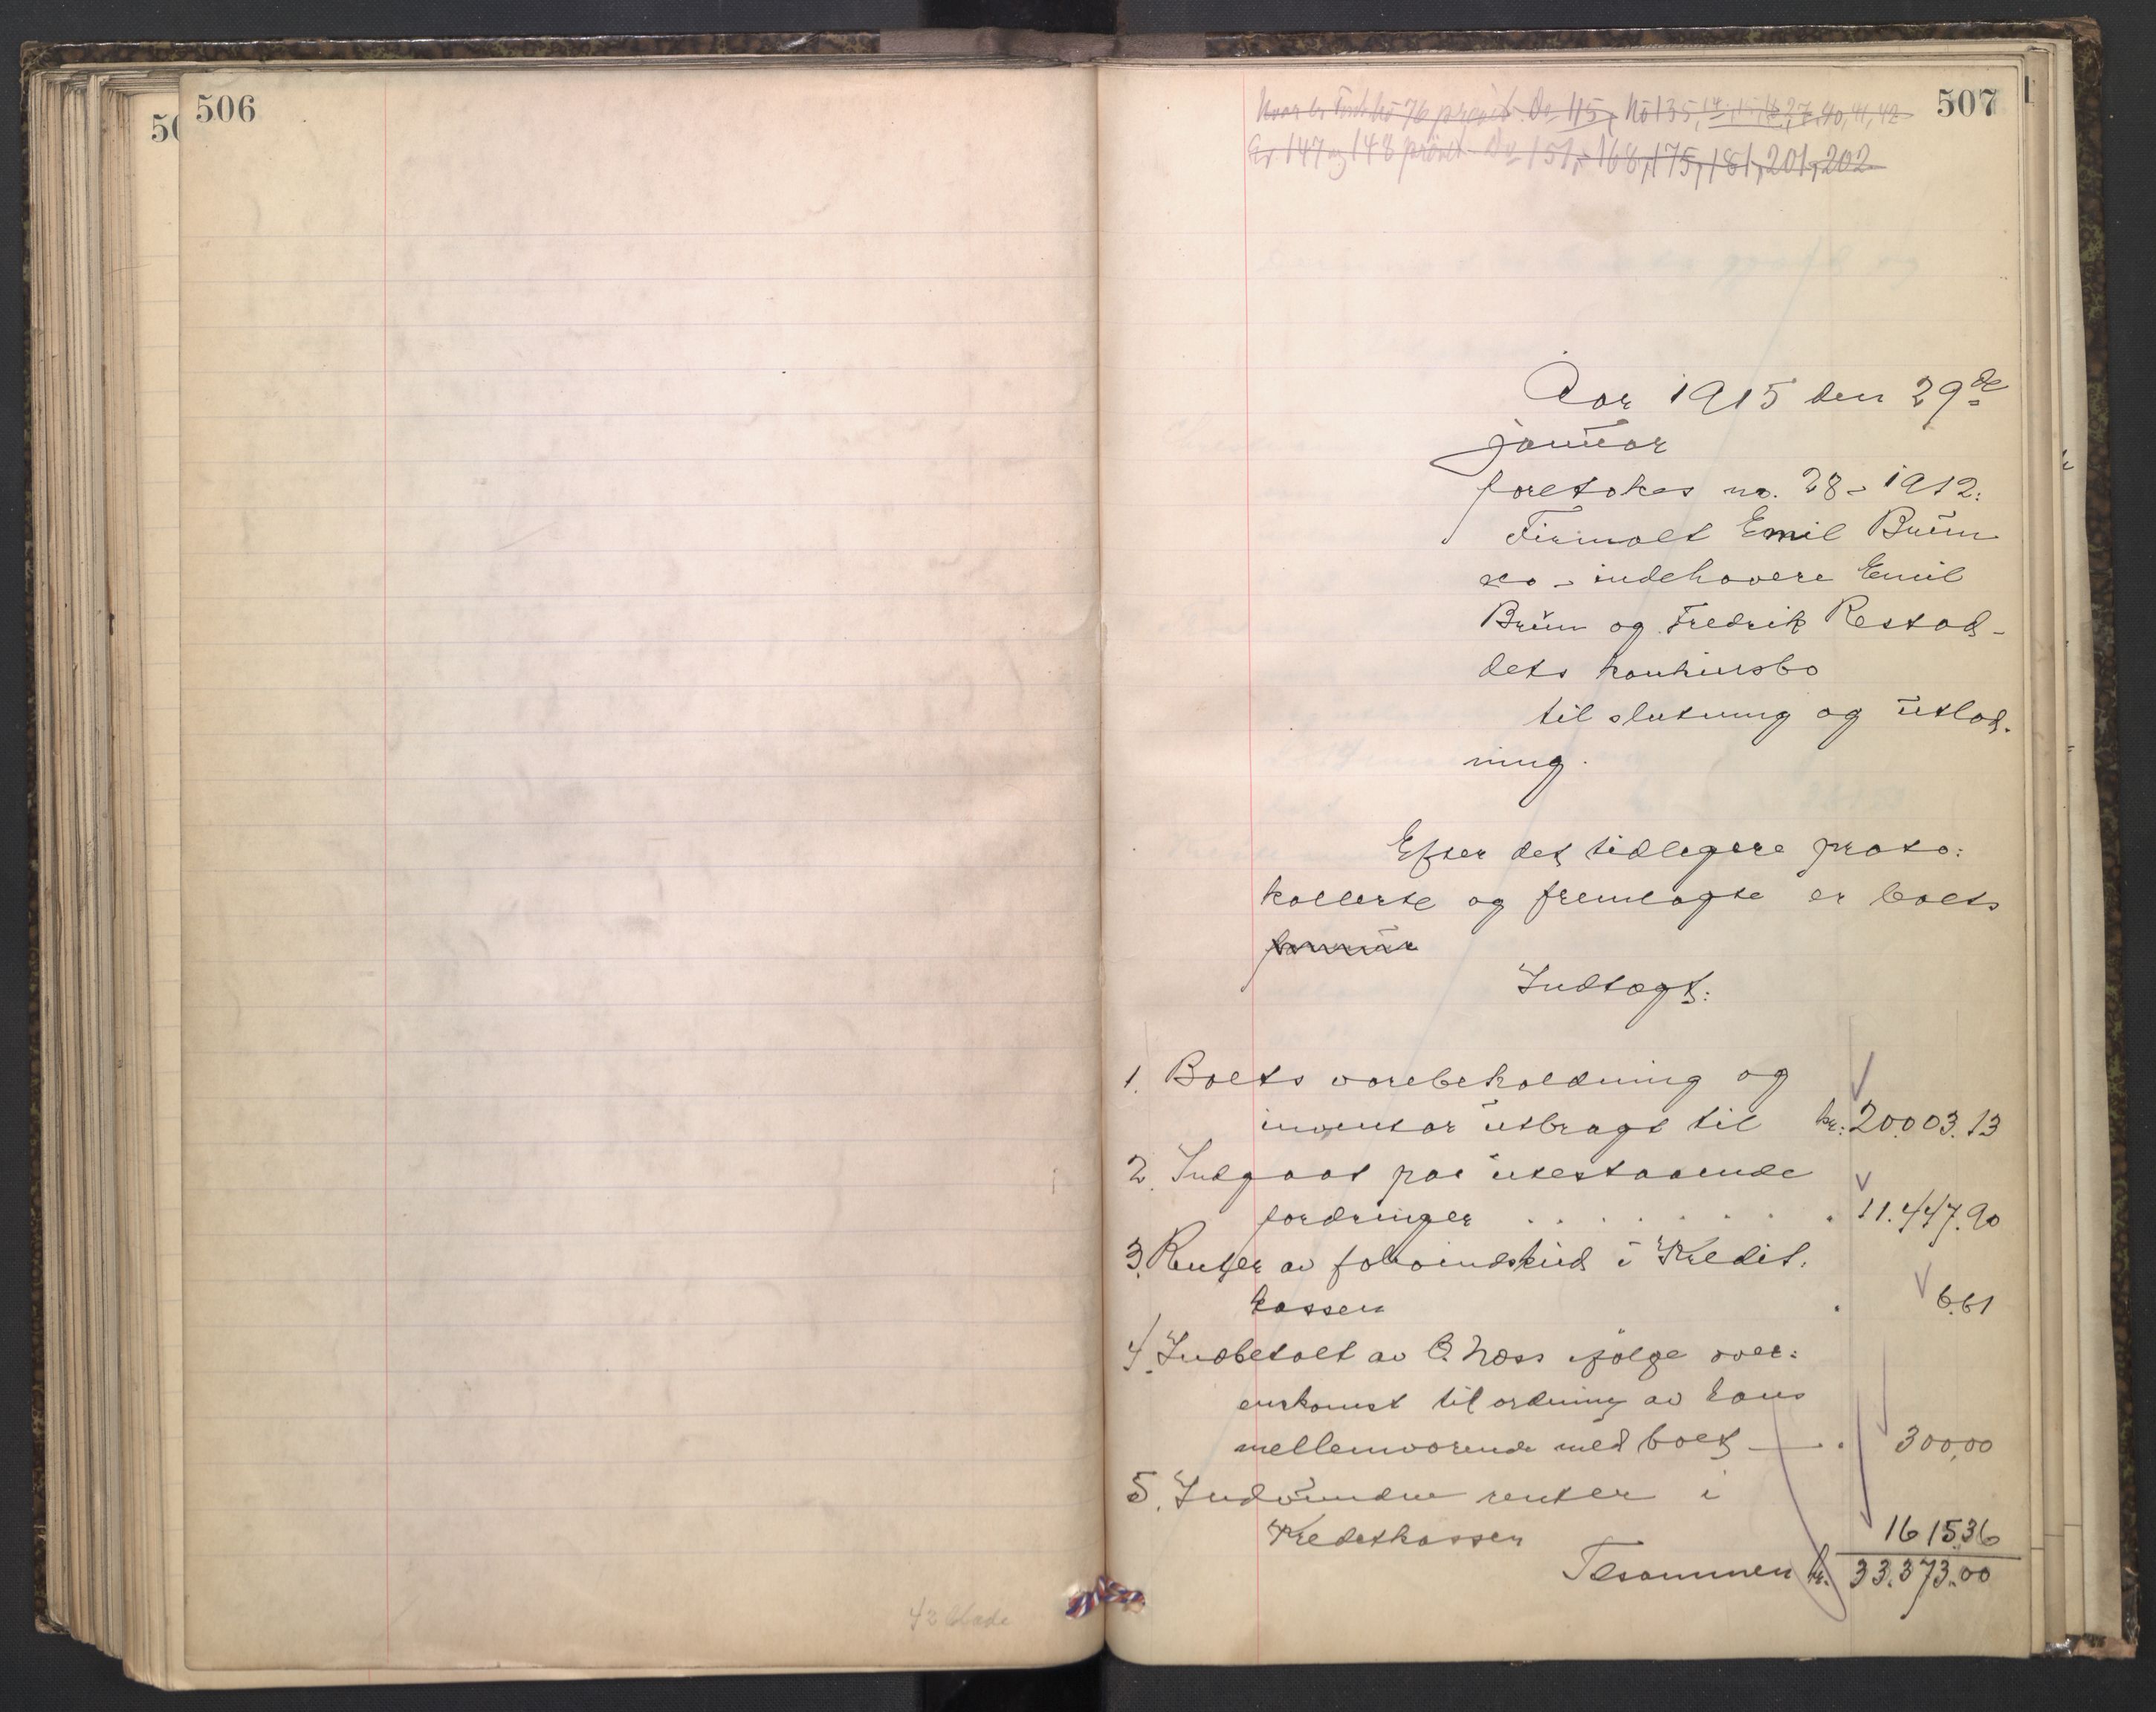 506
507
Hvor er Fordr. No 76 prövet. Do 115, No 135, 14, 15, 16, 27, 40, 41, 42
Er 147 og 148 prövet. Do 151, 168, 175, 181, 201, 202
Aar 1915 den 29de
januar
foretokes no. 28 - 1912:
Firmaet Emil Bruun
& co - indehavere Emil
Bruun og Fredrik Restad-
dets konkursbo
til slutning og utlod-
ning.
Efter det tidligere proto:
kollerte og fremlagte er boets
Indtægt:
1. Boets varebeholdning og
inventar utbragt til kr: 20.003.13
2. Indgaat paa utestaaende
fordringer . . . . . . . 11.447.90
3. Renter av folioindskud i Kredit.
kassen . 6.61
4. Indbetalt av O. Næss ifølge over:
enskomst til ordning av hans
mellemværende med boet . 300,00
5. Indvundne renter i
Kreditkassen 1615.36
Tilsammen kr. 33.373.00
42 blade